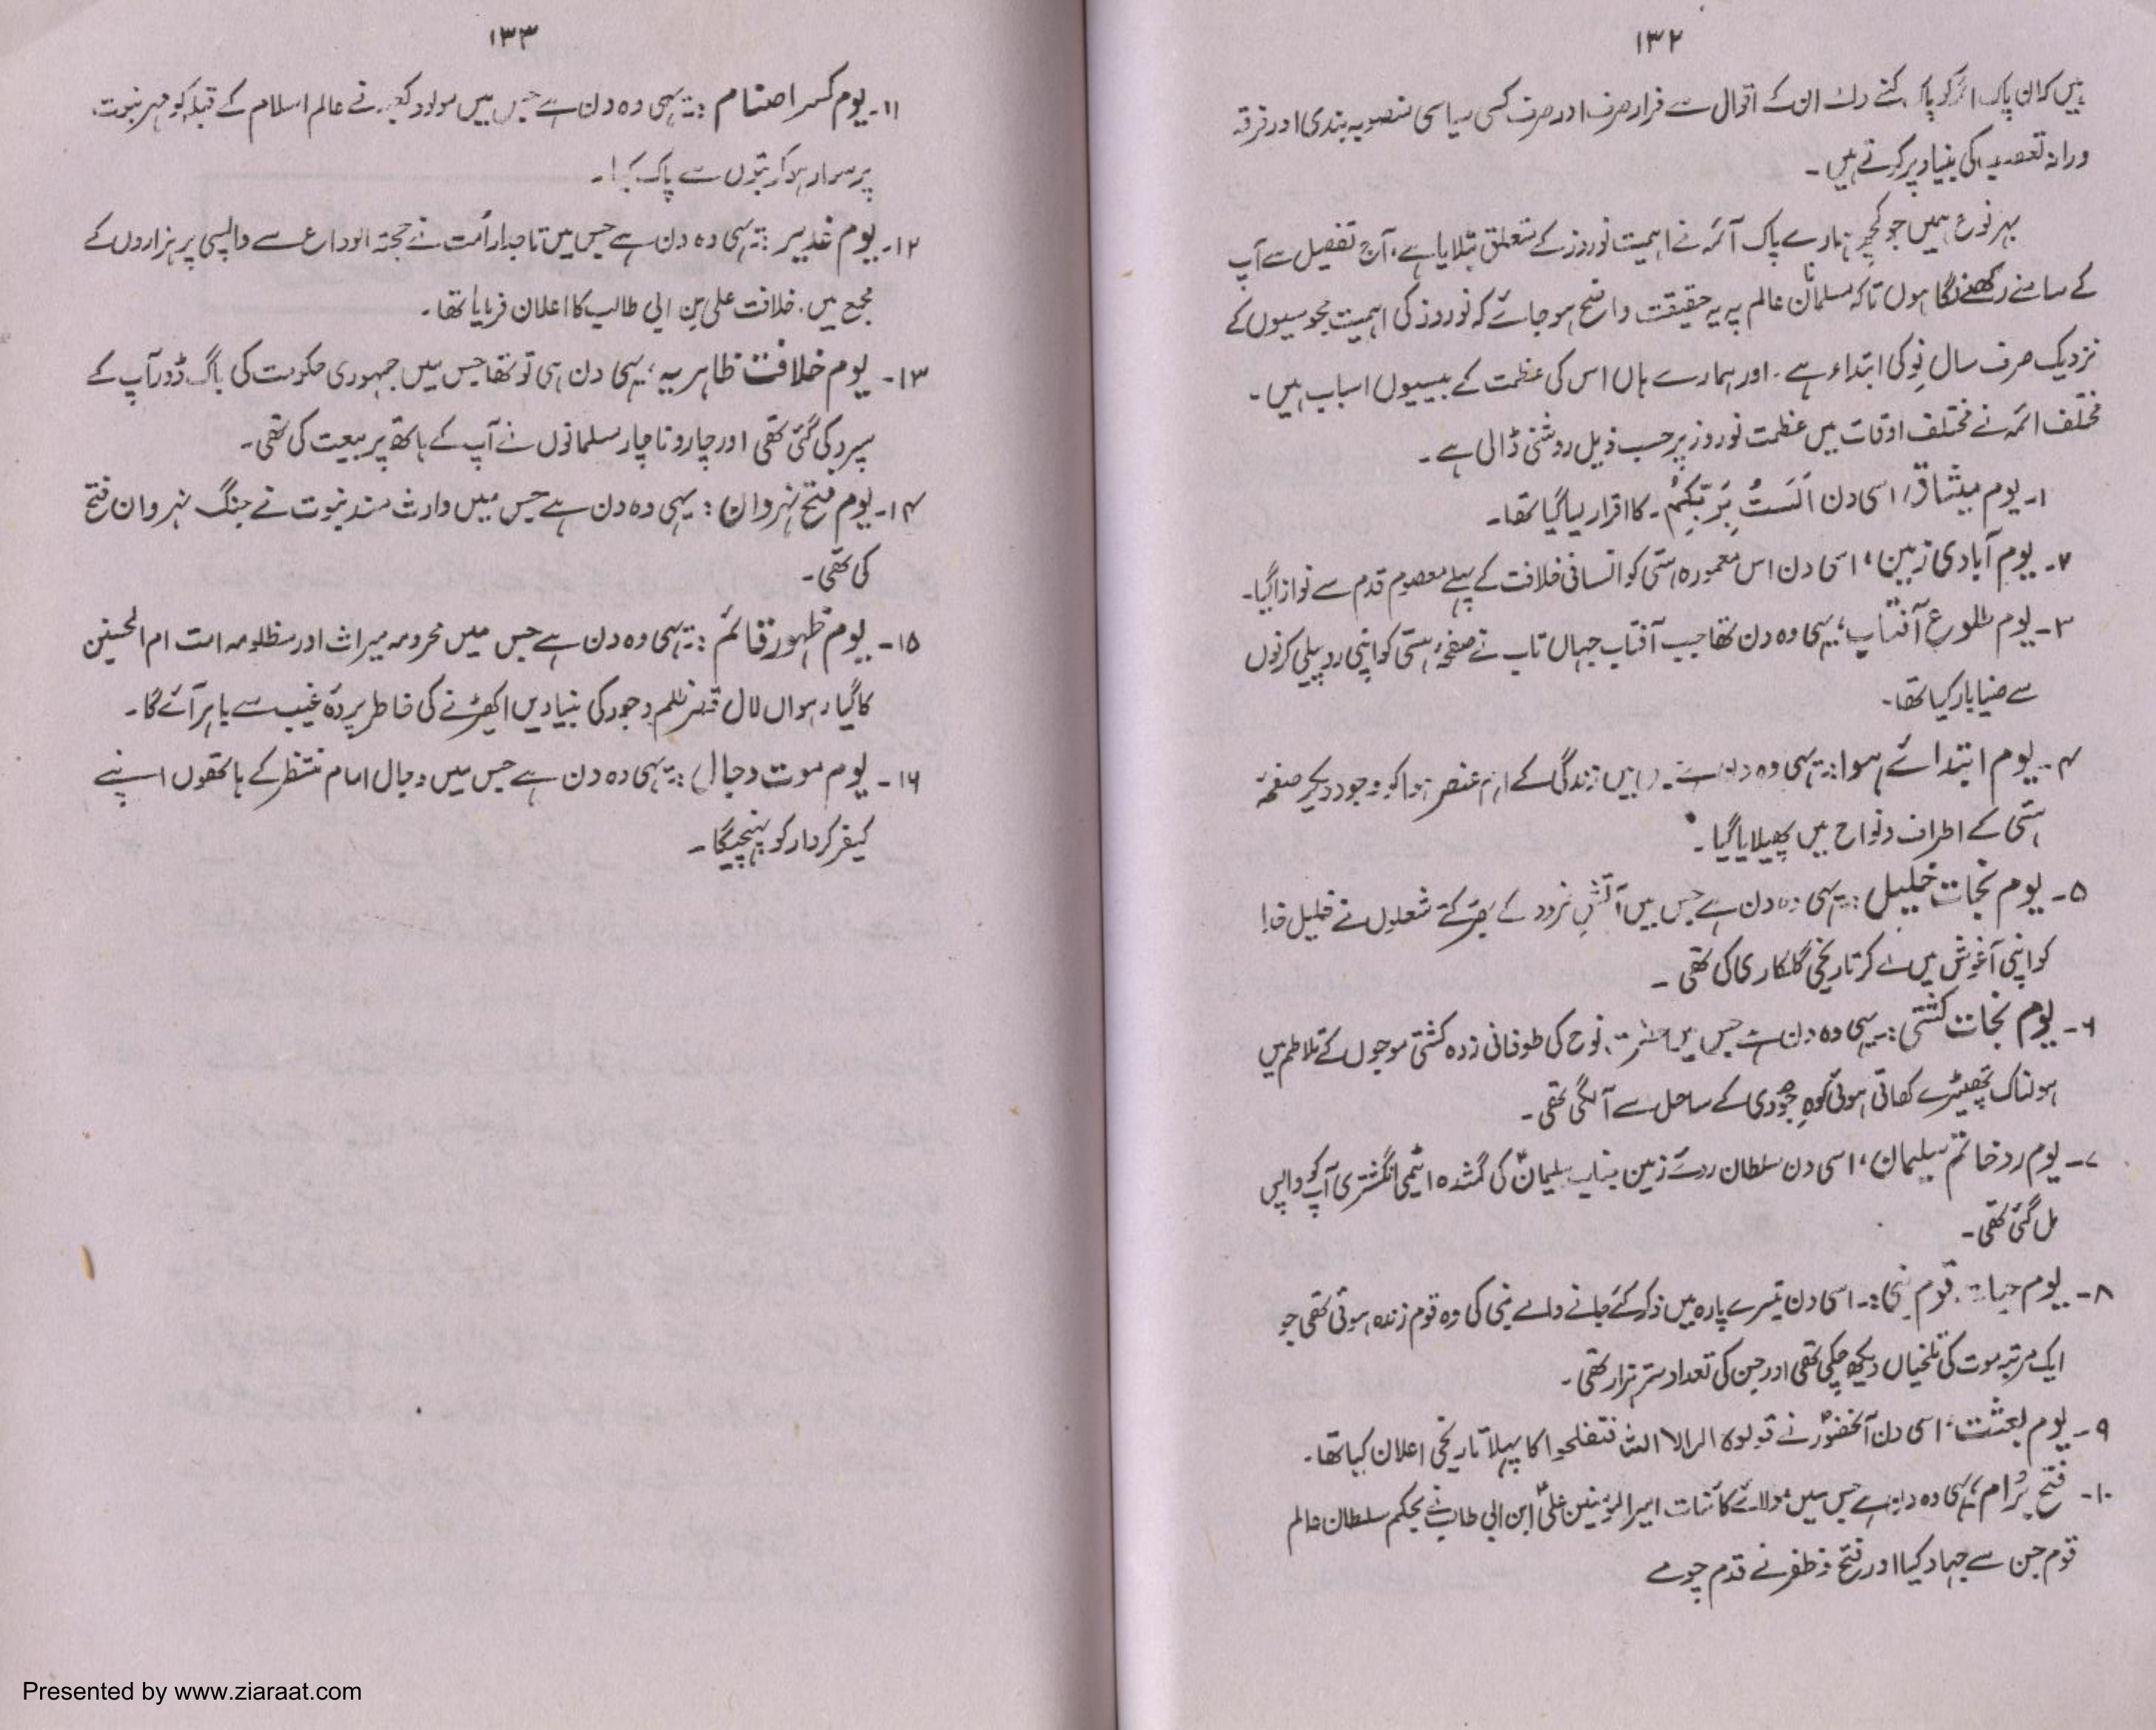 ۱۳۲
ہیں کہ ان پاک ائمہ کو پاک کہنے والے ان کے اقوال سے فرار صرف اور صرف کسی سیاسی منصوبہ بندی اور فرقہ
ورانہ تعصب کی بنیاد پر کرتے ہیں۔
بہر نوع ہمیں جو کچھ ہمارے پاک آئمہ نے اہمیت نوروز کے متعلق بتلایا ہے، آج تفصیل سے آپ
کے سامنے رکھنے لگا ہوں تاکہ مسلمانان عالم پہ یہ حقیقت واضح ہو جائے کہ نوروز کی اہمیت مجوسیوں کے
نزدیک صرف سال نو کی ابتداء ہے۔ اور ہمارے ہاں اس کی عظمت کے بیسیوں اسباب ہیں۔
مختلف ائمہ نے مختلف اوقات میں عظمت نوروز پر حسب ذیل روشنی ڈالی ہے۔
۱۔ یوم میثاق؛ اسی دن اَلَستُ بِرَبّکُم۔ کا اقرار لیا گیا تھا۔
۲۔ یوم آبادی زمین؛ اسی دن اس معمورہ ہستی کو انسانی خلافت کے پہلے معصوم قدم سے نوازا گیا۔
۳۔ یوم طلوع آفتاب؛ یہی وہ دن تھا جب آفتاب جہاں تاب نے صفحۂ ہستی کو اپنی روپہلی کرنوں
سے ضیا بار کیا تھا۔
۴۔ یوم ابتدائے ہوا:۔ یہی وہ دن ہے جس میں زندگی کے اہم عنصر ہوا کو وجود دیکر صفحۂ
ہستی کے اطراف و نواح میں پھیلایا گیا۔
۵۔ یوم نجات خلیل:۔ یہی وہ دن ہے جس میں آتش نمرود کے بھڑکتے شعلوں نے خلیل خدا
کو اپنی آغوش میں لے کر تاریخی گلکاری کی تھی۔
۶۔ یوم نجات کشتی:۔ یہی وہ دن ہے جس میں حضرت نوح کی طوفانی زدہ کشتی موجوں کے تلاطم میں
ہولناک تھپیڑے کھاتی ہوئی کوہِ جودی کے ساحل سے آ لگی تھی۔
۷۔ یوم رد خاتم سلیمان؛ اسی دن سلطان روئے زمین جناب سلیمانؑ کی گمشدہ ایٹمی انگشتری آپ کو واپس
مل گئی تھی۔
۸۔ یوم حیات قوم نبی:۔ اسی دن تیسرے پارہ میں ذکر کئے جانے والے نبی کی وہ قوم زندہ ہوئی تھی جو
ایک مرتبہ موت کی تلخیاں دیکھ چکی تھی اور جن کی تعداد ستر ہزار تھی۔
۹۔ یوم بعثت؛ اسی دن آنحضورؐ نے قولوا لا الہ الا اللہ فتفلحوا کا پہلا تاریخی اعلان کیا تھا۔
۱۰۔ فتح یہی وہ دن ہے جس میں مولائے کائنات امیر المؤمنین علیؑ ابن ابی طالب نے بحکم سلطان عالم
قوم جن سے جہاد کیا اور فتح و ظفر نے قدم چومے
۱۳۳
۱۱۔ یوم کسر اصنام:۔ یہی وہ دن ہے جس میں مولود کعبہ نے عالم اسلام کے قبلہ کو مہر نبوت
پر سوار ہو کر بتوں سے پاک کیا۔
۱۲۔ یوم غدیر:۔ یہی وہ دن ہے جس میں تاجدار اُمت نے حجتہ الوداع سے واپسی پر ہزاروں کے
مجمع میں۔ خلافت علی بن ابی طالب کا اعلان فرمایا تھا۔
۱۳۔ یوم خلافت ظاہریہ؛ یہی دن ہی تو تھا جس میں جمہوری حکومت کی باگ ڈور آپ کے
سپرد کی گئی تھی اور چار و ناچار مسلمانوں نے آپ کے ہاتھ پر بیعت کی تھی۔
۱۴۔ یوم فتح نہروان: یہی وہ دن ہے جس میں وارث مسند نبوت نے جنگ نہروان فتح
کی تھی۔
۱۵۔ یوم ظہور قائم:۔ یہی وہ دن ہے جس میں محرومہ میراث اور مظلومہ امت ام الحسنین
کا گیارہواں لال قصر ظلم و جور کی بنیادیں اکھڑنے کی خاطر پردۂ غیب سے باہر آئے گا۔
۱۶۔ یوم موت دجال:۔ یہی وہ دن ہے جس میں دجال امام منتظر کے ہاتھوں اپنے
کیفر کردار کو پہنچیگا۔
Presented by www.ziaraat.com